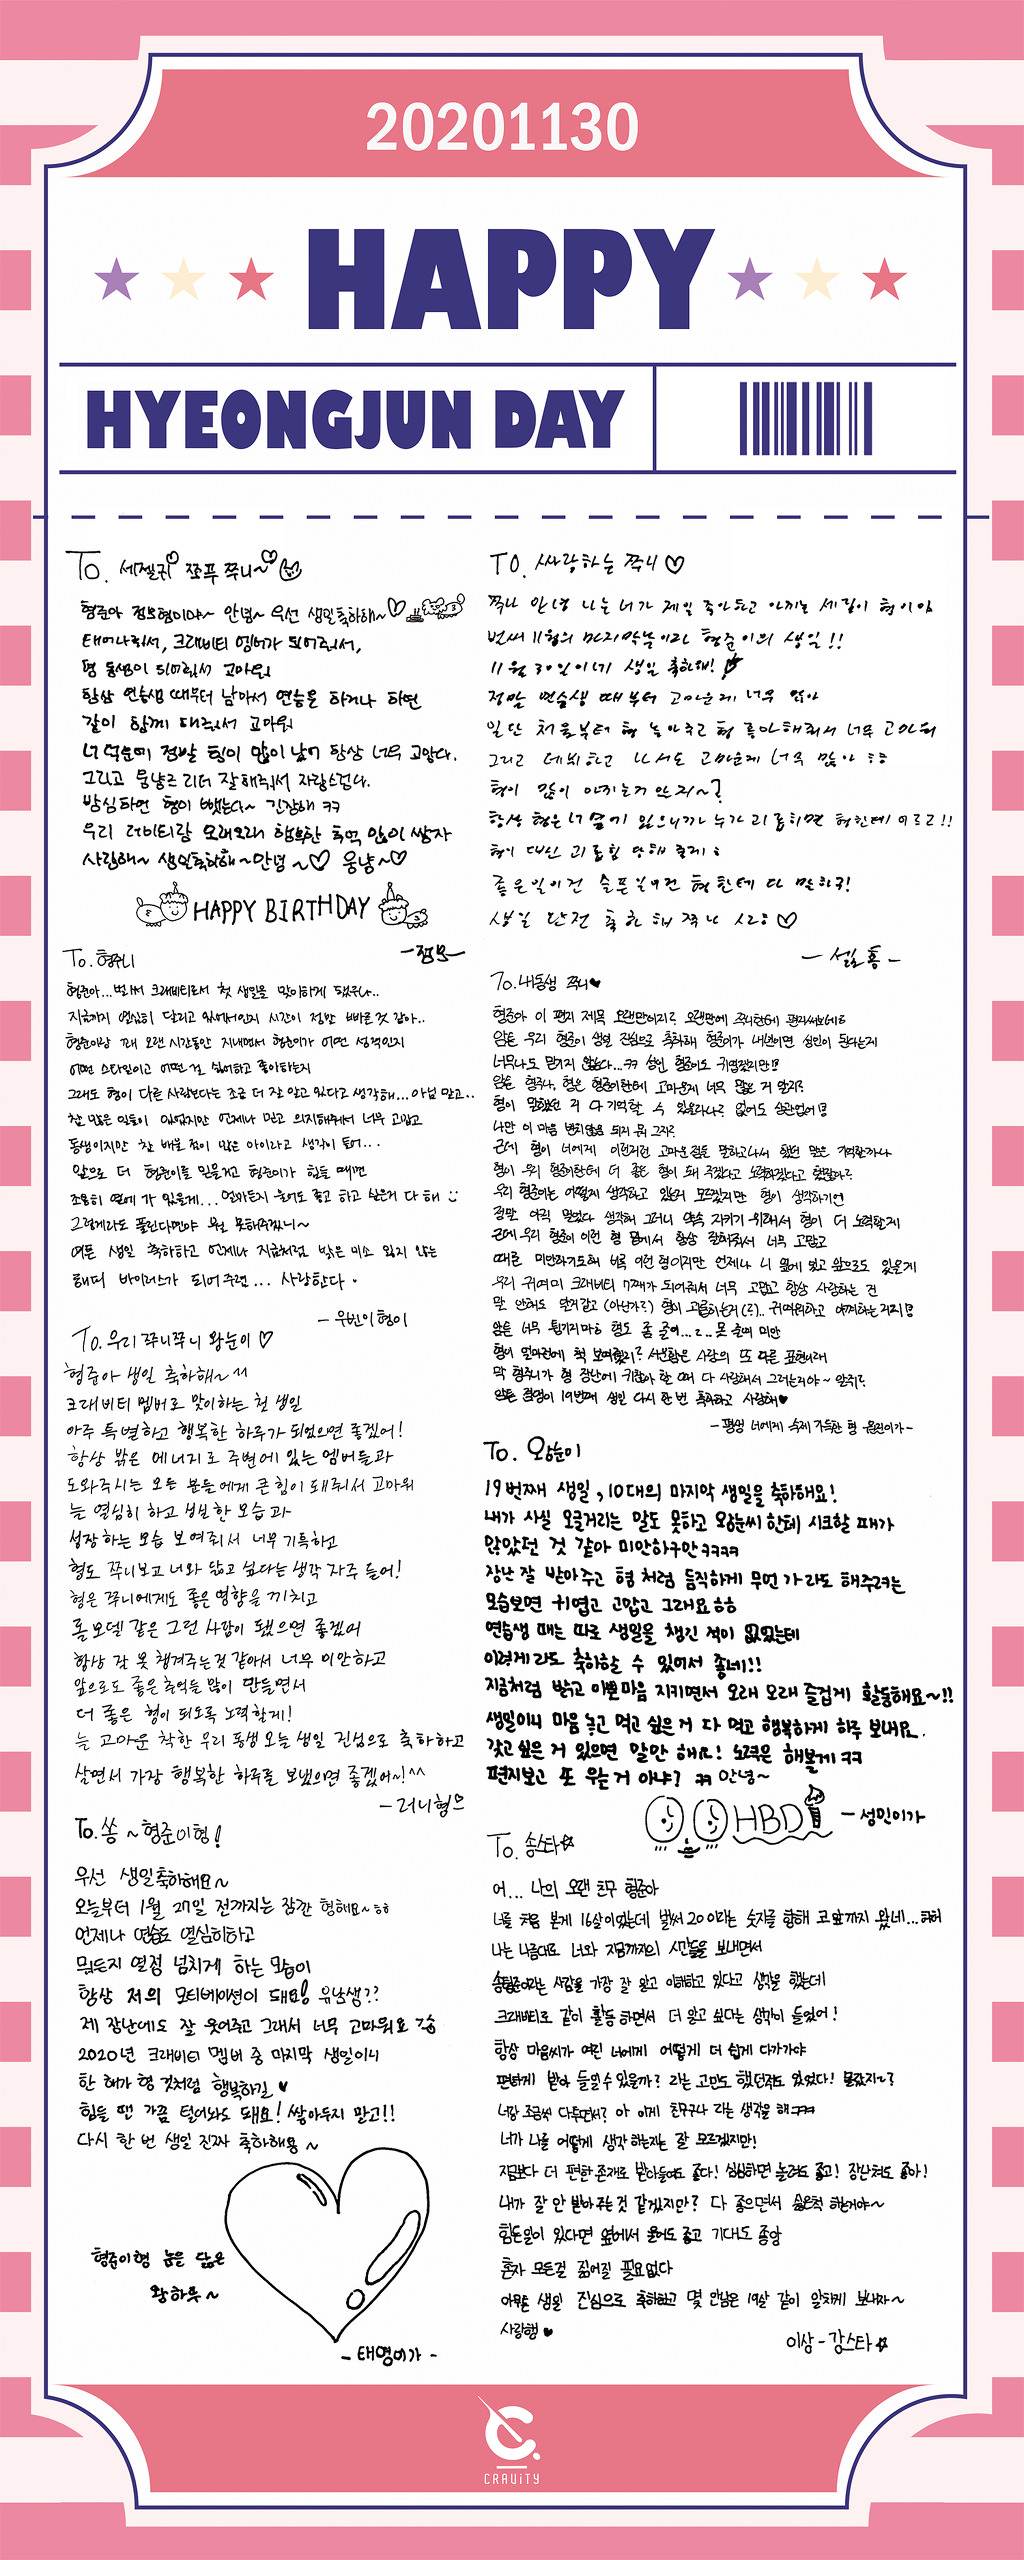 20201130
HAPPY
HYEONGJUN DAY
To. 세젤귀 쪼푸 쭈니~
형준아 정모형이야~ 안녕~ 우선 생일축하해~
태어나줘서, 크래비티 멤버가 되어줘서,
형 동생이 되어줘서 고마워
항상 연습생 때부터 남아서 연습을 하거나 하면
같이 함께 해줘서 고마워
너 덕분에 정말 힘이 많이 났어 항상 너무 고맙다.
그리고 뭉냥즈 리더 잘해줘서 자랑스럽다.
방심하면 형이 뺏는다~ 긴장해 ㅋㅋ
우리 러비티랑 오래오래 행복한 추억 많이 쌓자
사랑해~ 생일축하해~안녕~♡ 뭉냥~♡
HAPPY BIRTHDAY
-쩡모-
To. 형주니
형준아...벌써 크래비티로서 첫 생일을 맞이하게 됐구나..
지금까지 열심히 달리고 있어서인지 시간이 정말 빠른 것 같아..
형준이랑 꽤 오랜 시간동안 지내면서 형준이가 어떤 성격인지
어떤 스타일이고 어떤 걸 싫어하고 좋아하는지
그래도 형이 다른 사람보다는 조금 더 잘 알고 있다고 생각해...아님 말고..
참 많은 일들이 있었지만 언제나 믿고 의지해줘서 너무 고맙고
동생이지만 참 배울 점이 많은 아이라고 생각이 들어...
앞으로 더 형준이를 믿을게고 형준이가 힘들 때면
조용히 옆에 가 있을게... 언제든지 놀어도 좋고 하고 싶은거 다 해
그렇게라도 풀린다면야 뭔들 못해주겠니~
여튼 생일 축하하고 언제나 지금처럼 밝은 미소 잃지 않는
해피 바이러스가 되어주렴... 사랑한다.
-우빈이형이
To. 우리 쭈니쭈니 왕눈이♡
형준아 생일 축하해~^^
크래비티 멤버로 맞이하는 첫 생일
아주 특별하고 행복한 하루가 되었으면 좋겠어!
항상 밝은 에너지로 주변에 있는 멤버들과
도와주시는 모든 분들에게 큰 힘이 돼줘서 고마워
늘 열심히 하고 성실한 모습과
성장하는 모습 보여줘서 너무 기특하고
형도 쭈니보고 너와 닮고 싶다는 생각 자주 들어!
형은 쭈니에게도 좋은 영향을 끼치고
롤모델 같은 그런 사람이 됐으면 좋겠어
항상 잘 못 챙겨주는것 같아서 너무 미안하고
앞으로도 좋은 추억들 많이 만들면서
더 좋은 형이 되도록 노력할게!
늘 고마운 착한 우리 동생 오늘 생일 진심으로 축하하고
살면서 가장 행복한 하루를 보냈으면 좋겠어~!^^
-러니형으
To. 쏭~형준이형!
우선 생일축하해요~
오늘부터 1월 27일 전까지는 잠깐 형해요~ㅎㅎ
언제나 연습도 열심히하고
뭐든지 열정 넘치게 하는 모습이
항상 저의 모티베이션이 돼요! 유남쌩??
제 장난에도 잘 웃어주고 그래서 너무 고마워요
2020년 크래비티 멤버 중 마지막 생일이니
한 해가 형 것처럼 행복하길♥
힘들 땐 가끔 털어놔도 돼요! 쌓아두지 말고!!
다시 한 번 생일 진짜 축하해용~
형준이형 눈을 닮은
왕하트~
-태영이가-
To. 싸랑하는 쭈니♡
쭈니 안녕 나는 너가 제일 좋아하고 아끼는 세림이 형이야
벌써 11월의 마지막날이라 형준이의 생일!!
11월 30일이네 생일 축하해!
정말 연습생 때부터 고마운게 너무 많아
일단 처음부터 형 놓아주고 형 좋아해줘서 너무 고마워
그리고 데뷔하고 나서도 고마운게 너무 많아
형이 많이 아끼는거 알지~?
항상 형은 너 옆에 있으니까 누가 괴롭히면 형한테 이르고!!
형이 대신 괴롭힘 당해 줄게
좋은일이건 슬픈일이건 형한테 다 말하구!
생일 완전 축하해 쭈니 사랑♡
-세림홍-
To. 내동생 쭈니♥
형준아 이 편지 제목 오랜만이지? 오랜만에 쭈니한테 편지써보네ㅎ
암튼 우리 형준이 생일 진심으로 축하해 형준이가 내년이면 성인이 된다는게
너무나도 믿기지 않는다...ㅋㅋ 성인 형준이도 귀엽겠지만!!
암튼 형주니, 형은 형준이한테 고마운게 너무 많은 거 알지?
형이 말했던 거 다 기억할 수 있을라나? 없어도 상관없어!!
나만 이 마음 변치않음 되지 뭐 그치?
근데 형이 너에게 이런저런 고마운점을 말하고나서 했던 말은 기억할까나
형이 우리 형준이한테 더 좋은 형이 돼 주겠다고 노력하겠다고 했잖아?
우리 형준이는 어떻게 생각하고 있는지 모르겠지만 형이 생각하기엔
정말 아직 멀었다 생각해 그러니 약속 지키기 위해서 형이 더 노력할게
근데 우리 형준이 이런 형 옆에서 항상 잘해줘서 너무 고맙고
때론 미안하기도해 비록 이런 형이지만 언제나 니 옆에 있고 앞으로도 있을게
우리 귀여미 크래비티 기재가 되어줘서 너무 고맙고 항상 사랑하는 건
말 안해도 알거같고(아닌가?) 형이 괴롭히는거(?).. 귀여워하고 아껴하는거지!!
암튼 너무 튕기지마ㅎ 형도 좀 울어...ㄹ.. 못 줄여 미안
형이 얼마전에 척 보여줬지? 사냥함은 사랑의 또 다른 표현이래
막 형주니가 형 장난에 귀찮아 할 때 다 사랑해서 그러는거야~ 알쥐?
암튼 쥬영이 19번째 생일 다시 한 번 축하하고 사랑해♥
-평생 너에게 숙제 가득한 형 원진이가-
To. 왕눈이
19번째 생일, 10대의 마지막 생일을 축하해요!
내가 사실 오글거리는 말도 못하고 왕눈씨 한테 시크할 때가
많았던 것 같아 미안하구만ㅋㅋㅋㅋ
장난 잘 받아주고 형처럼 듬직하게 무언가라도 해주려는
모습보면 귀엽고 고맙고 그래요ㅎㅎ
연습생 때는 따로 생일을 챙긴 적이 없었는데
이렇게라도 축하할 수 있어서 좋네!!
지금처럼 밝고 이쁜마음 지키면서 오래오래 즐겁게 활동해요~!!
생일이니 마음 놓고 먹고 싶은거 다 먹고 행복하게 하루 보내요.
갖고싶은 거 있으면 말만 해요! 노력은 해볼게ㅋㅋ
편지보고 또 우는거 아냐? ㅋㅋ 안녕~
HBD
-성민이가
To. 송스타☆
어... 나의 오랜 친구 형준아
너를 처음 본게 16살이었는데 벌써 20이라는 숫자를 향해 코앞까지 왔네...하하
나는 나름대로 너와 지금까지의 시간들을 보내면서
송형준이라는 사람을 가장 잘 알고 이해하고 있다고 생각을 했는데
크래비티로 같이 활동하면서 더 알고 싶다는 생각이 들었어!
항상 마음씨가 여린 너에게 어떻게 더 쉽게 다가가야
편하게 받아 들일수 있을까? 라는 고민도 했던적도 있었다! 몰랐지~?
너랑 조금씩 다투면서? 아 이게 친구구나 라는 생각을 해ㅋㅋ
너가 나를 어떻게 생각하는지는 잘 모르겠지만!
지금보다 더 편한 존재로 받아들여도 좋다! 심심하면 놀려도 좋고! 장난쳐도 좋아!
내가 잘 안 받아 주는것 같겠지만? 다 좋으면서 싫은척 하는거야~
힘든일이 있다면 옆에서 울어도 좋고 기대도 좋앙
혼자 모든걸 짊어질 필요없다
아무튼 생일 진심으로 축하하고 몇 안남은 19살 같이 알차게 보내자~
사랑행♥
이상-강스타☆
CRAVITY